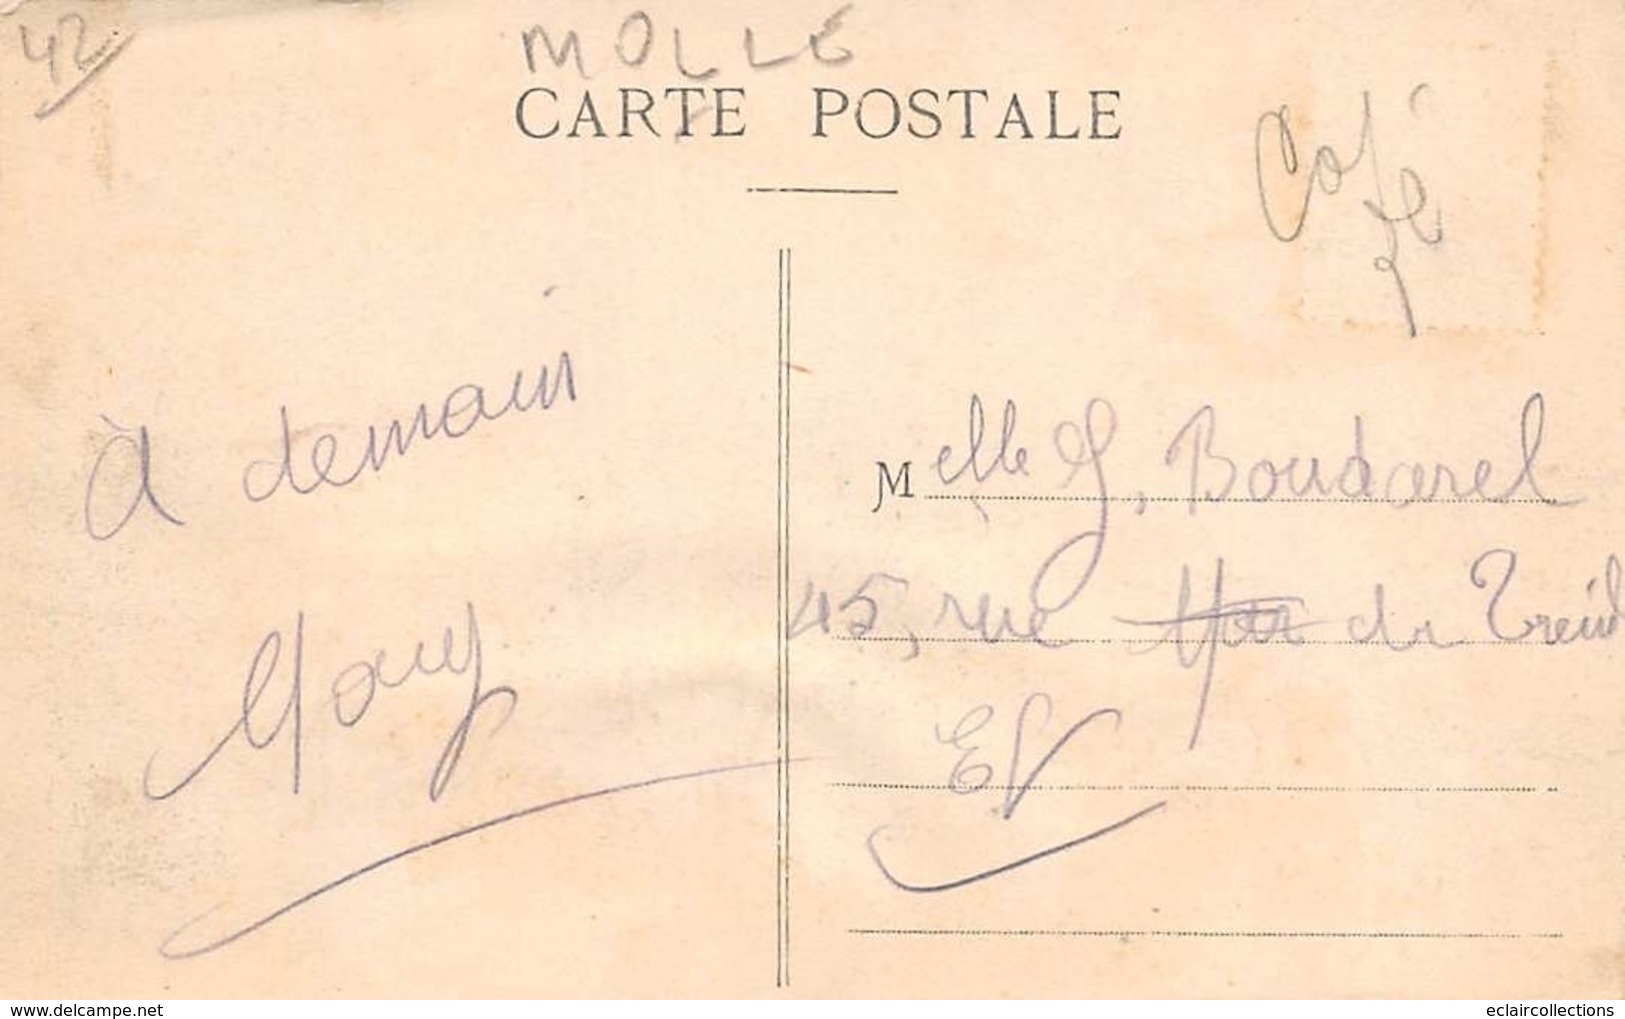 42
MOLLE
CARTE POSTALE
Café
à demain
Mary
Melle G. Boudarel
45, rue du Treuil
EV
delcampe.net
eclaircollections